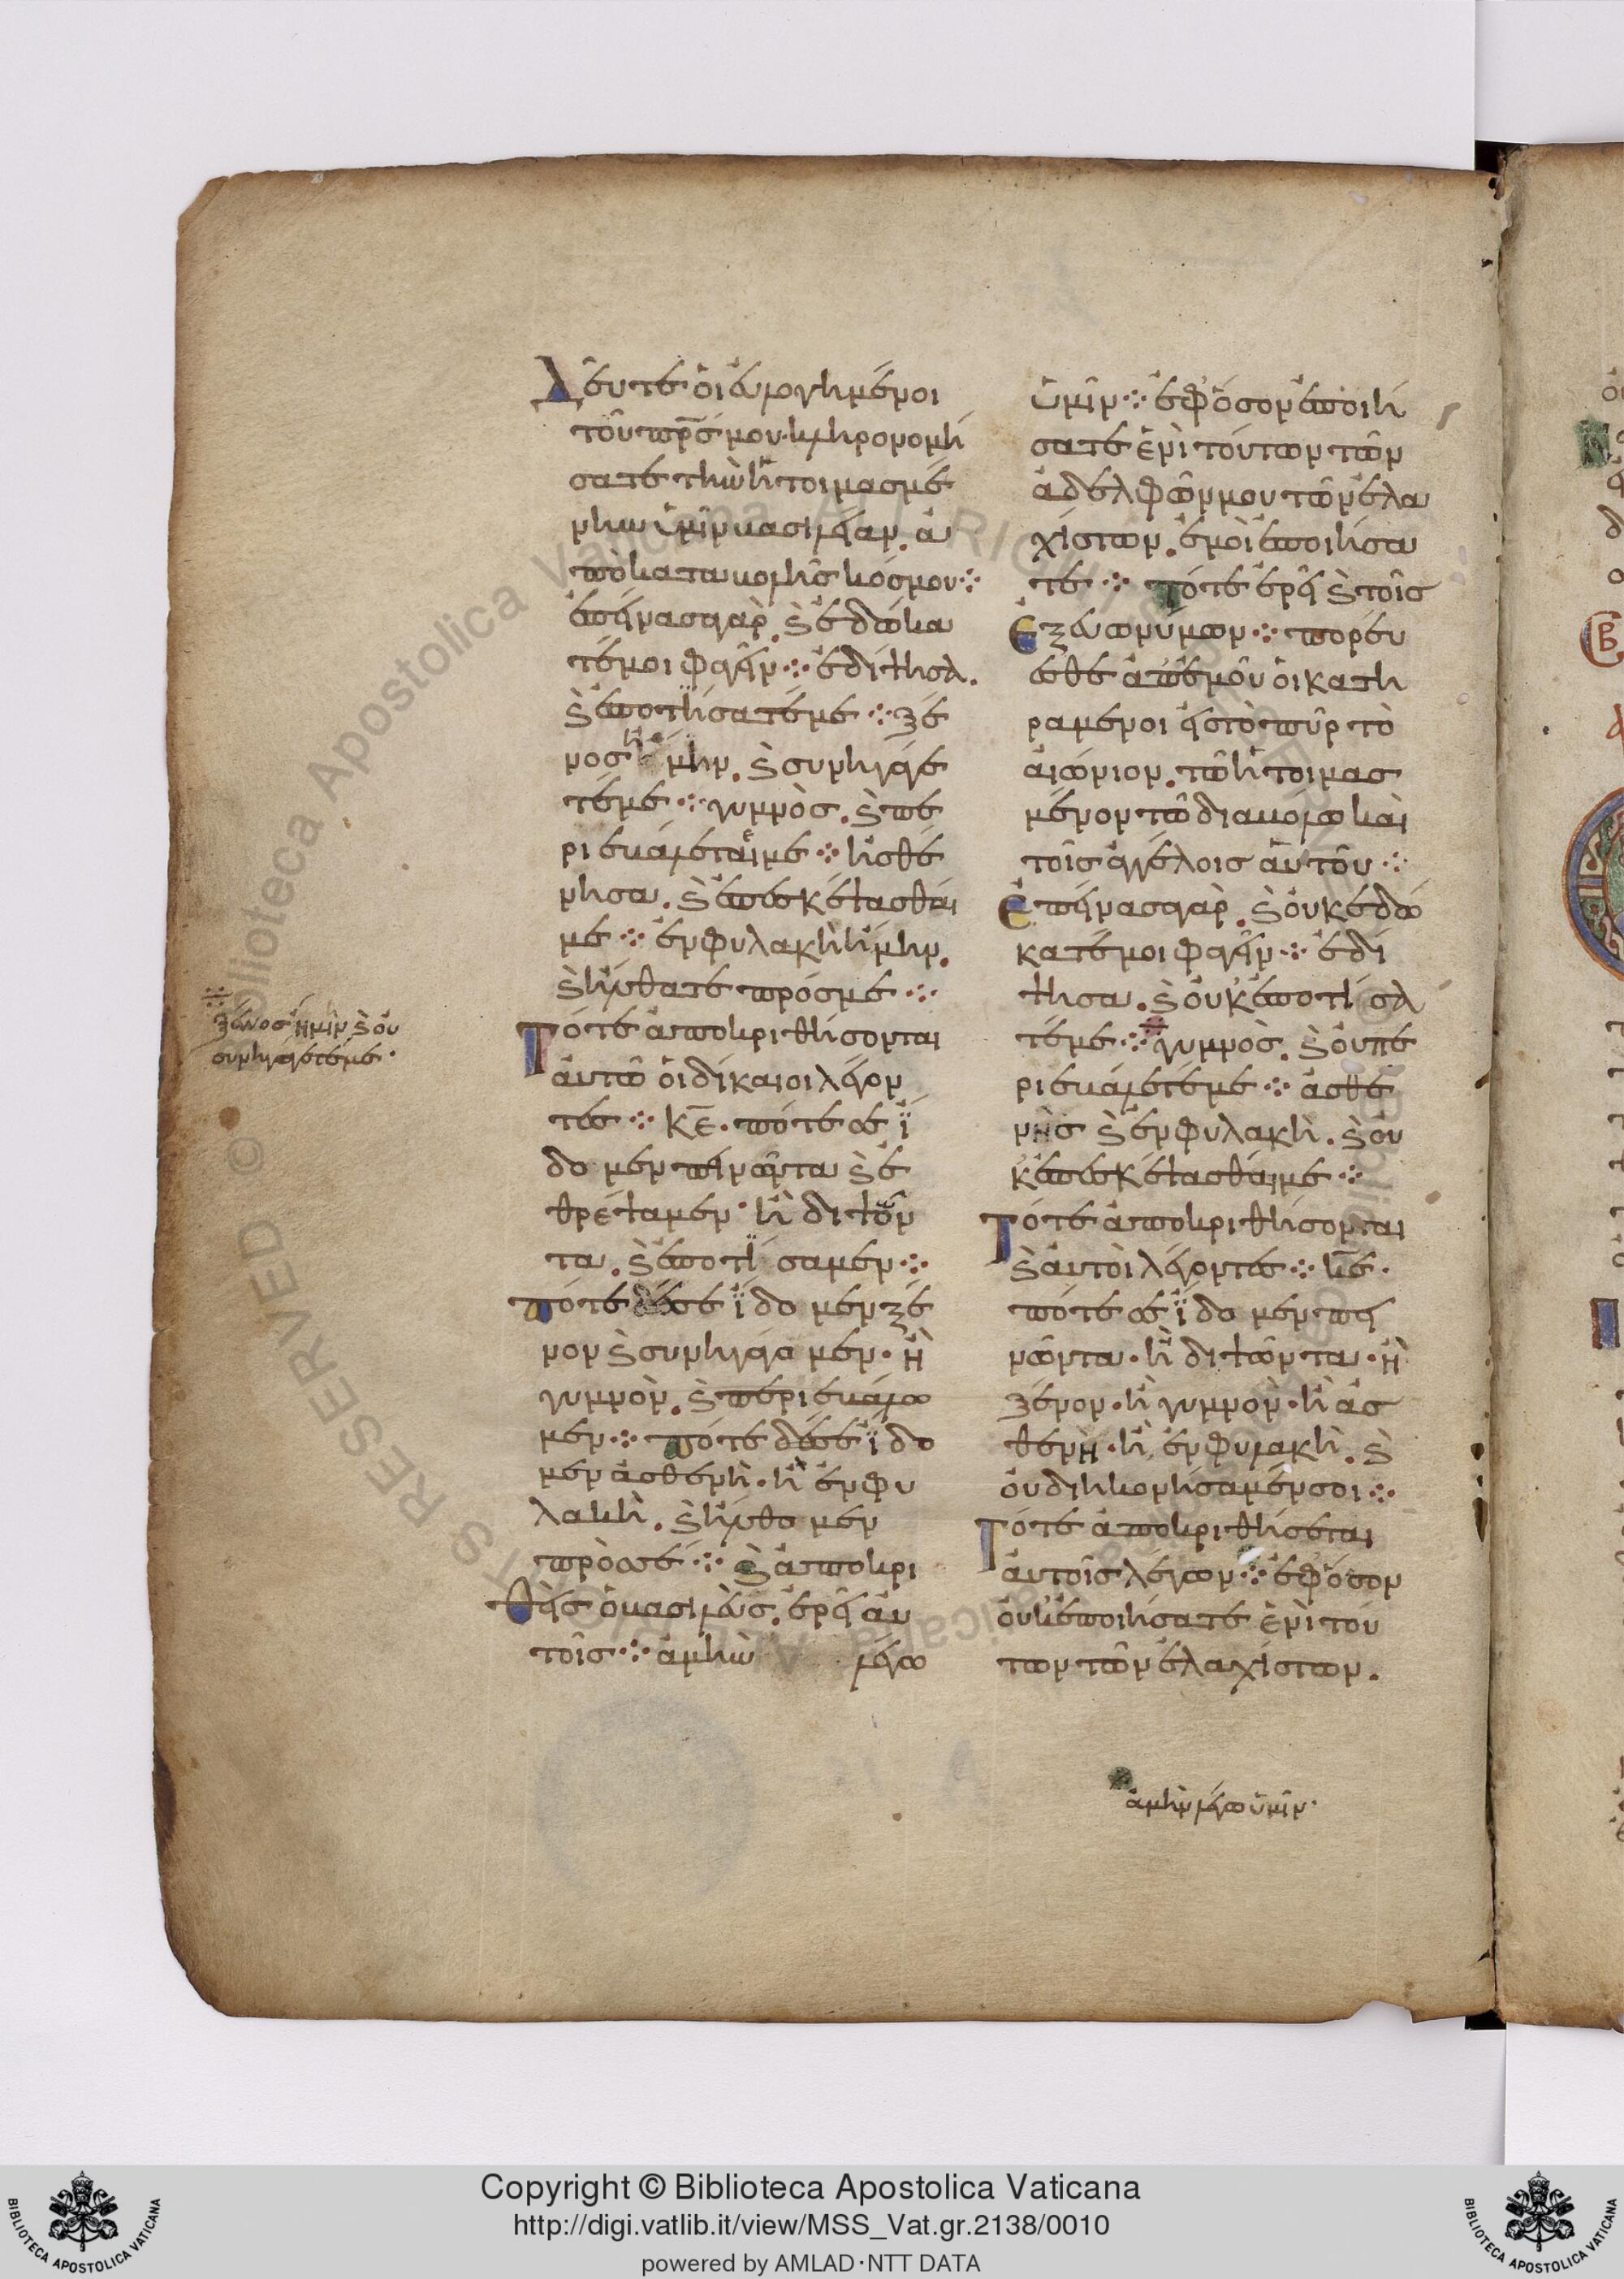 Δεῦτε ὁι ἐυλογημένοι
τοῦ πρ̅ς μου· κληρονομή
σατε τὴν ἡτοιμασμέ
νην ὑμῖν βασιλείαν. ἀ
πὸ καταβολῆς κόσμου
ἐπείνασα γὰρ. ϗ ἐδώκα
τέ μοι φαγεῖν ἐδίψησα.
ϗ ἐποτίσατέ με ξέ
νος ἤμην. ϗ συνηγάγε
τέ με γυμνὸς. ϗ πε
ριεβάλεταί με ἠσθέ
νησα. ϗ ἐπεσκέψασθαί
με ἐν φυλακὴ ἤμην.
ϗ ἤλθατε πρός με
Τότε ἀποκριθήσονται
ἀυτῶ ὁι δίκαιοι λέγον
τες κε̅. πότε σε ἴ
δομεν πινῶντα ϗ ἐ
θρέψαμεν· ἢ διψῶν
τα. ϗ ἐποτήσαμεν
πότε δέ σε ἴδομεν ξέ
νον ϗ συνηγάγαμεν· ἢ
γυμνὸν. ϗ περιεβάλο
μεν πότε δέ σε ἴδο
μεν ἀσθενῆ· ἢ ἐν φυ
λακὴ. ϗ ἤλθομεν
πρὸς σέ ϗ ἀποκρι
θεὶς ὁ βασιλεὺς. ἐρεῖ ἀυ
τοῖς ἀμὴν λέγω
ὑμῖν ἐφ ὅσον ἐποιή
σατε ἑνὶ τούτων τῶν
ἀδελφῶν μου τῶν ἐλα
χίστων. ἐμοὶ ἐποιήσα
τε τότε ἐρεῖ ϗ τοῖς
ἐξ ἐυωνύμων πορεύ
εσθε ἀπ ἐμοῦ ὁι κατη
ραμένοι εἰς τὸ πῦρ τὸ
ἀιώνιον. τῶ ἡτοιμασ
μένον τῶ διαβόλω καὶ
τοῖς ἀγγέλοις ἀυτοῦ
Ἐπείνασα γὰρ. ϗ ὀυκ ἐδώ
κατέ μοι φαγεῖν ἐδί
ψησα. ϗ ὀυκ ἐποτίσα
τέ με γυμνὸς. ϗ ὀυ πε
ριεβάλετέ με ἀσθε
νὴς ϗ ἐν φυλακὴ. ϗ ὀυ
κ ἐπεσκέψασθαί με
Τότε ἀποκριθήσονται
ϗ ἀυτοὶ λέγοντες κ̅ε.
πότε σε ἴδομεν πει
νῶντα· ἢ διψῶντα· ἢ
ξένον· ἢ γυμνὸν· ἢ ἀσ
θενὴ· ἢ ἐν φυλακὴ. ϗ
ὀυ διηκονήσαμέν σοι
Τότε ἀποκριθήσεται
ἀυτοῖς λέγων ἐφ ὅσον
ὀυκ ἐποιήσατε ἑνὶ τού
των τῶν ἐλαχίστων.
ξένος ἤμην ϗ ὀυ
συνηγάγετέ με·
ἀμὴν λέγω ὑμῖν·
Copyright © Biblioteca Apostolica Vaticana
http://digi.vatlib.it/view/MSS_Vat.gr.2138/0010
powered by AMLAD·NTT DATA
BIBLIOTECA APOSTOLICA VATICANA
BIBLIOTECA APOSTOLICA VATICANA